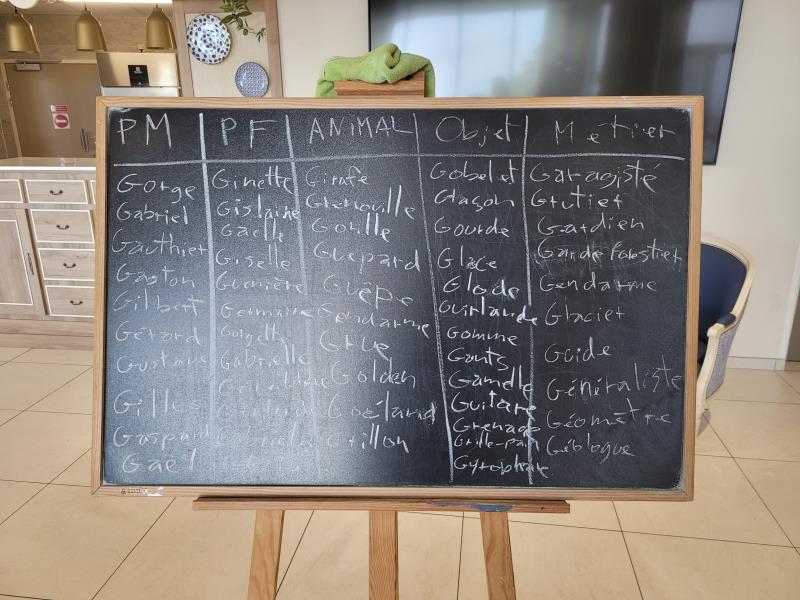 PM PF ANIMAL Objet Métier
Gorge Ginette Girafe Gobelet Garagiste
Gabriel Gislaine Grenouille Glaçon Grutier
Gauthier Gaelle Gorille Gourde Gardien
Gaston Giselle Guépard Glace Garde forestier
Gilbert Guenière Guêpe Globe Gendarme
Gérard Germaine Gendarme Guirlande Glacier
Gustave Georgette Grue Gomme Guide
Gilles Gabrielle Golden Gants Généraliste
Gaspard Goéland Gamelle Géomètre
Gaël Grillon Guitare Géologue
Grenade
Grille-pain
Gyrophare